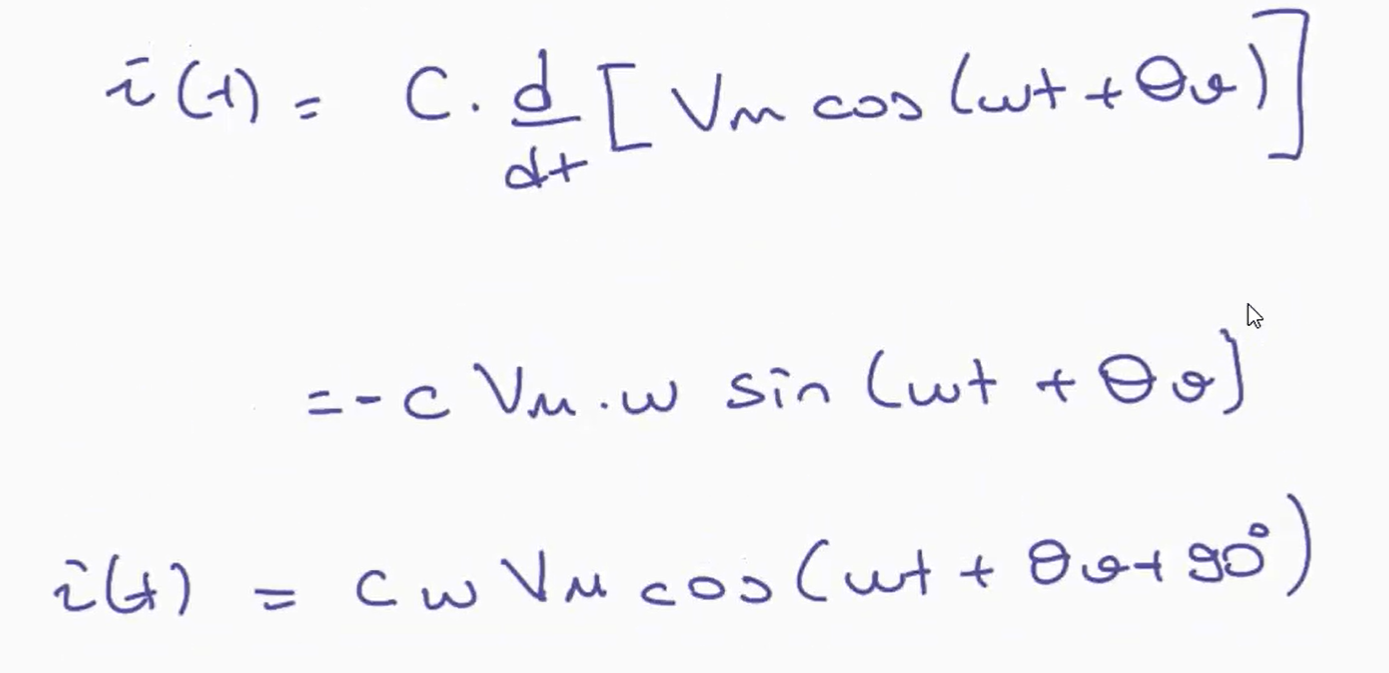 i(t) = C. d/dt [ Vm cos (ωt + θv) ]
= - C Vm . ω sin (ωt + θv)
i(t) = C ω Vm cos (ωt + θv + 90°)